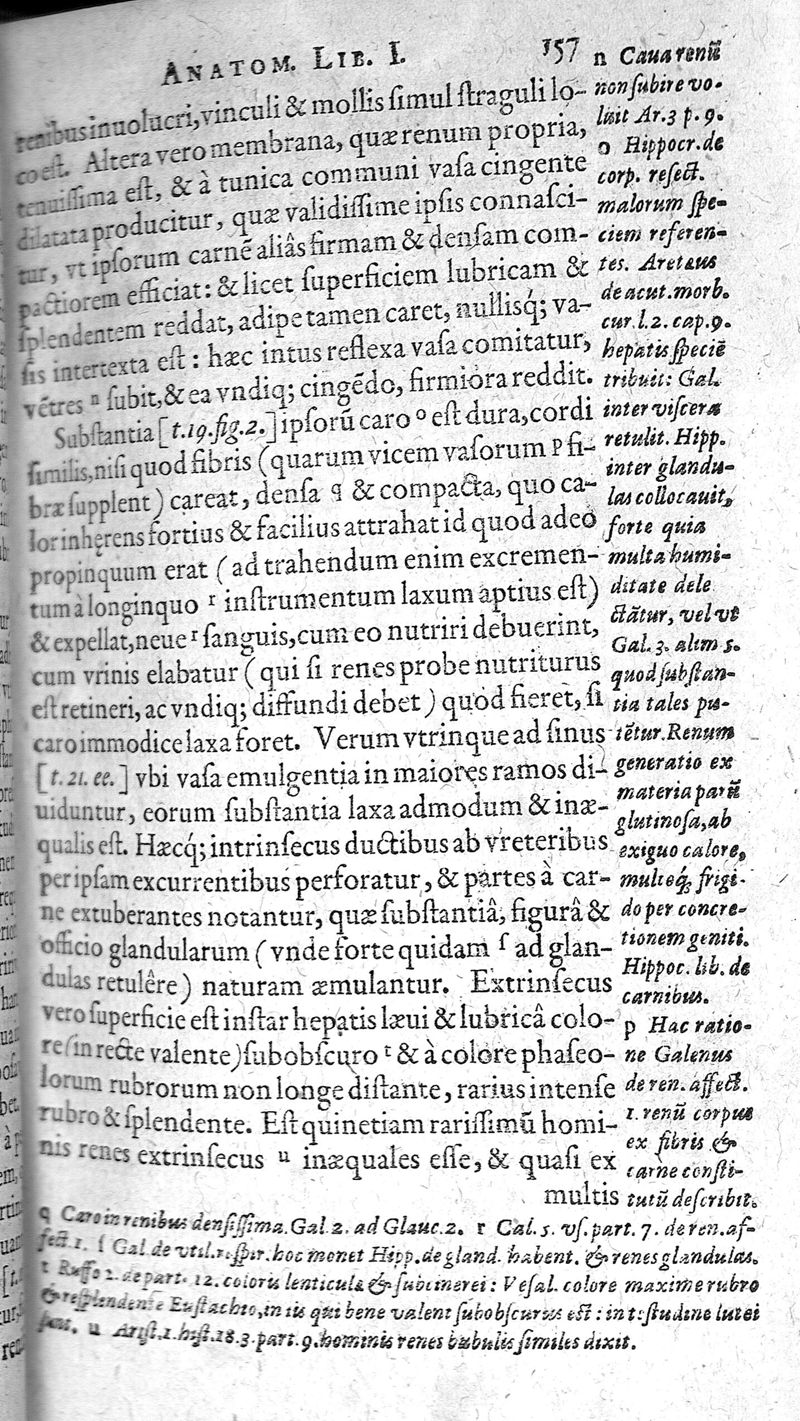 ANATOM. LIB. I. 157
renibus inuolucri, vinculi & mollis simul straguli lo-
co est. Altera vero membrana, quæ renum propria,
tenuissima est, & à tunica communi vasa cingente
dilatata producitur, quæ validissime ipsis connasci-
tur, vt ipsorum carnẽ aliâs firmam & densam com-
pactiorem efficiat: & licet superficiem lubricam &
splendentem reddat, adipe tamen caret, nullisq́; va-
sis intertexta est: hæc intus reflexa vasa comitatur,
vẽtres n subit, & ea vndiq; cingẽdo, firmiora reddit.
Substantia [t.19.fig.2.] ipsorũ caro o est dura, cordi
similis, nisi quod fibris (quarum vicem vasorum p fi-
bræ supplent) careat, densa q & compacta, quo ca-
lor inhęrens fortius & facilius attrahat id quod adeo
propinquum erat (ad trahendum enim excremen-
tum à longinquo r instrumentum laxum aptius est)
& expellat, neue r sanguis, cum eo nutriri debuerint,
cum vrinis elabatur (qui si renes probe nutriturus
est retineri, ac vndiq; diffundi debet) quod fieret, si
caro immodice laxa foret. Verum vtrinque ad sinus
[t. 21. ee.] vbi vasa emulgentia in maiores ramos di-
uiduntur, eorum substantia laxa admodum & inæ-
qualis est. Hæcq́; intrinsecus ductibus ab vreteribus
per ipsam excurrentibus perforatur, & partes à car-
ne extuberantes notantur, quæ substantiâ, figurâ &
officio glandularum (vnde forte quidam ſ ad glan-
dulas retulêre) naturam æmulantur. Extrinsecus
vero superficie est instar hepatis læui & lubricâ colo-
re (in recte valente) subobscuro t & à colore phaseo-
lorum rubrorum non longe distante, rarius intense
rubro & splendente. Est quinetiam rarissimũ homi-
nis renes extrinsecus u inæquales esse, & quasi ex
multis
n Caua renũ
non subire vo-
luit Ar. 3 p. 9.
o Hippocr. de
corp. resect.
malorum spe-
ciem referen-
tes. Aretæus
de acut. morb.
cur. l. 2. cap. 9.
hepatis speciẽ
tribuit: Gal.
inter viscera
retulit. Hipp.
inter glandu-
las collocauit,
forte quia
multa humi-
ditate dele
ctãtur, vel vt
Gal. 3. alim 5.
quod substan-
tia tales pu-
tẽtur. Renum
generatio ex
materia parũ
glutinosa, ab
exiguo calore,
multoq́; frigi-
do per concre-
tionem geniti.
Hippoc. lib. de
carnibus.
p Hac ratio-
ne Galenus
de ren. affect.
1. renũ corpus
ex fibris &
carne consti-
tutũ describit.
q Caro in renibus densissima. Gal 2. ad Glauc 2. r Cal. 5. vs. part. 7. de ren. af-
fect. 1. ſ Gal de vtil. respir. hoc monet Hipp. de gland. habent. & renes glandulas.
t Ruffo 2. de part. 12. coloris lenticulæ & subcinerei: Vesal. colore maxime rubro
& resplendente Eustachio, in iis qui bene valent subobscurus est: in testudine lutei
u Arist. 1. hist. 18. 3. part. 9. hominis renes bubulis similes dixit.